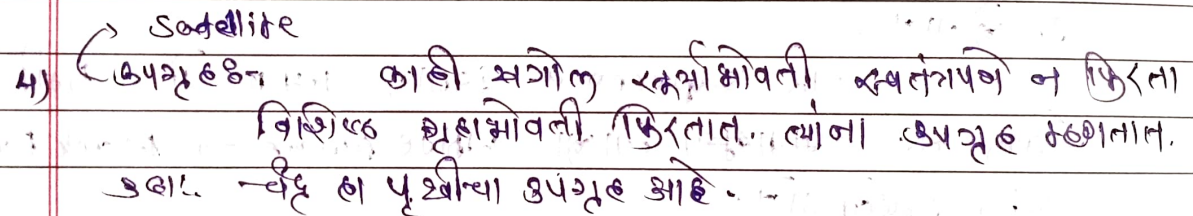 Satellite
4) उपग्रह :- काही खगोल सूर्याभोवती स्वतंत्रपणे न फिरता
विशिष्ठ ग्रहाभोवती फिरतात. त्यांना उपग्रह म्हणतात.
उदा:. चंद्र हा पृथ्वीचा उपग्रह आहे.